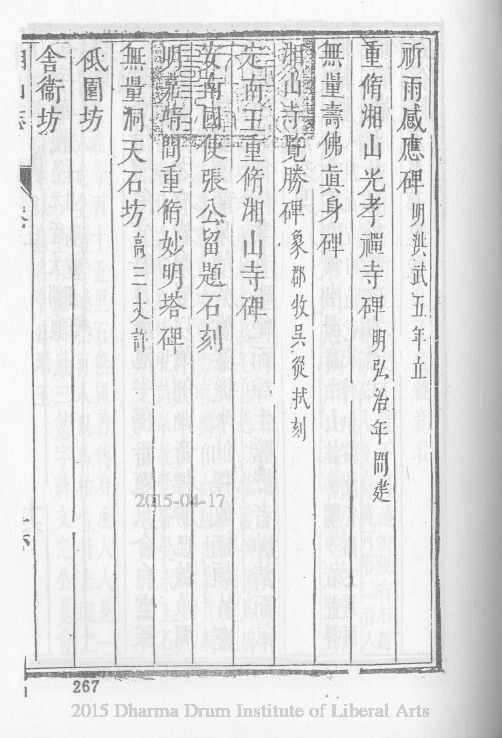 祈雨感應碑 明洪武五年立
重脩湘山光孝禪寺碑 明弘治年間建
無量壽佛眞身碑
湘山寺覽勝碑 象郡牧吳從拭刻
定南王重脩湘山寺碑
安南國使張公留題石刻
明嘉靖間重脩妙明塔碑
無量洞天石坊 高三丈許
低園坊
舍衞坊
湘山志
2015-04-17
267
2015 Dharma Drum Institute of Liberal Arts